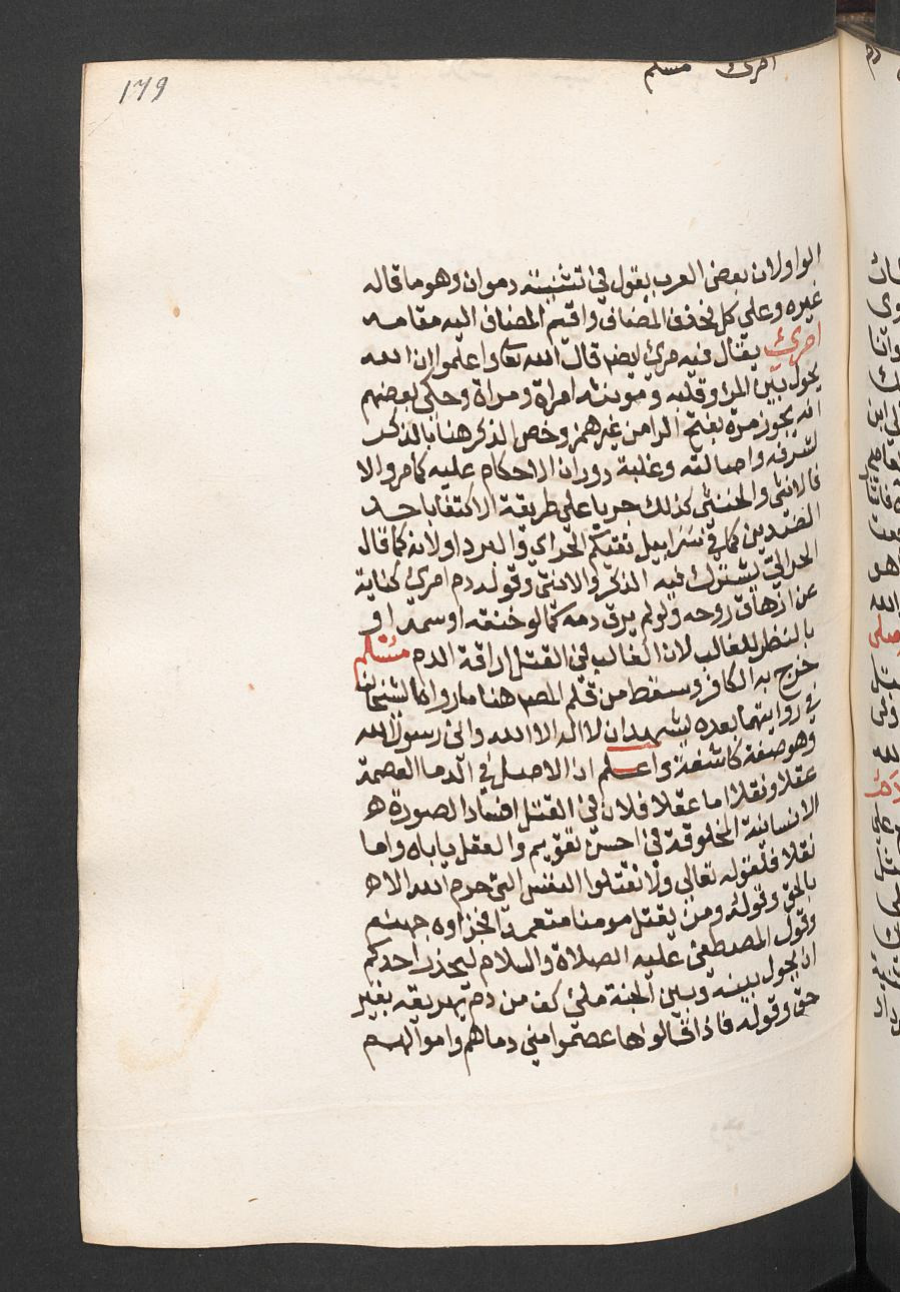 179
امرئ مسلم
الواو لان بعض العرب يقول في تثنيته دموان وهو ما قاله
غيره وعلى كل فحذف المضاف واقيم المضاف اليه مقامه
امرئ يقال فيه مرئ ايضا قال الله تعا واعلموا ان الله
يحول بين المرء وقلبه ومونثه امراة ومراة وحكى بعضهم
انه يجوز مره بفتح الرا من غير همز وخص الذكر هنا بالذكر
لشرفه واصالته وغلبة دوران الاحكام عليه كما مر والا
فالانثى والخنثى كذلك جريا على طريقة الاكتفا باحد
الضدين كما في سرابيل تقيكم الحر اي والبرد او لانه كما قال
الحرالي يشترك فيه الذكر والانثى وقوله دم امرئ كناية
عن ازهاق روحه ولو لم يرق دمه كما لو خنقه او سمه او
بالنظر للغالب لان الغالب في القتل اراقة الدم مسلم
خرج به الكافر وسقط من قلم المصـ هنا ما رواه الشيخان
في روايتهما بعده يشهد ان لا اله الا الله واني رسول الله
وهو صفة كاشفة واعلم ان الاصل في الدما العصمة
عقلا ونقلا اما عقلا فلان في القتل افساد الصورة ه
الانسانية المخلوقة في احسن تقويم والعقل ياباه واما
نقلا فلقوله تعالي ولا تقتلوا النفس التي حرم الله الا ه
بالحق وقوله ومن يقتل مومنا متعمدا فجزاوه جهنم
وقول المصطفى عليه الصلاة والسلام ليحذر احدكم
ان يحول بينه وبين الجنة ملئ كف من دم يهريقه بغير
حق وقوله فاذا قالوها عصموا مني دماهم واموالهم